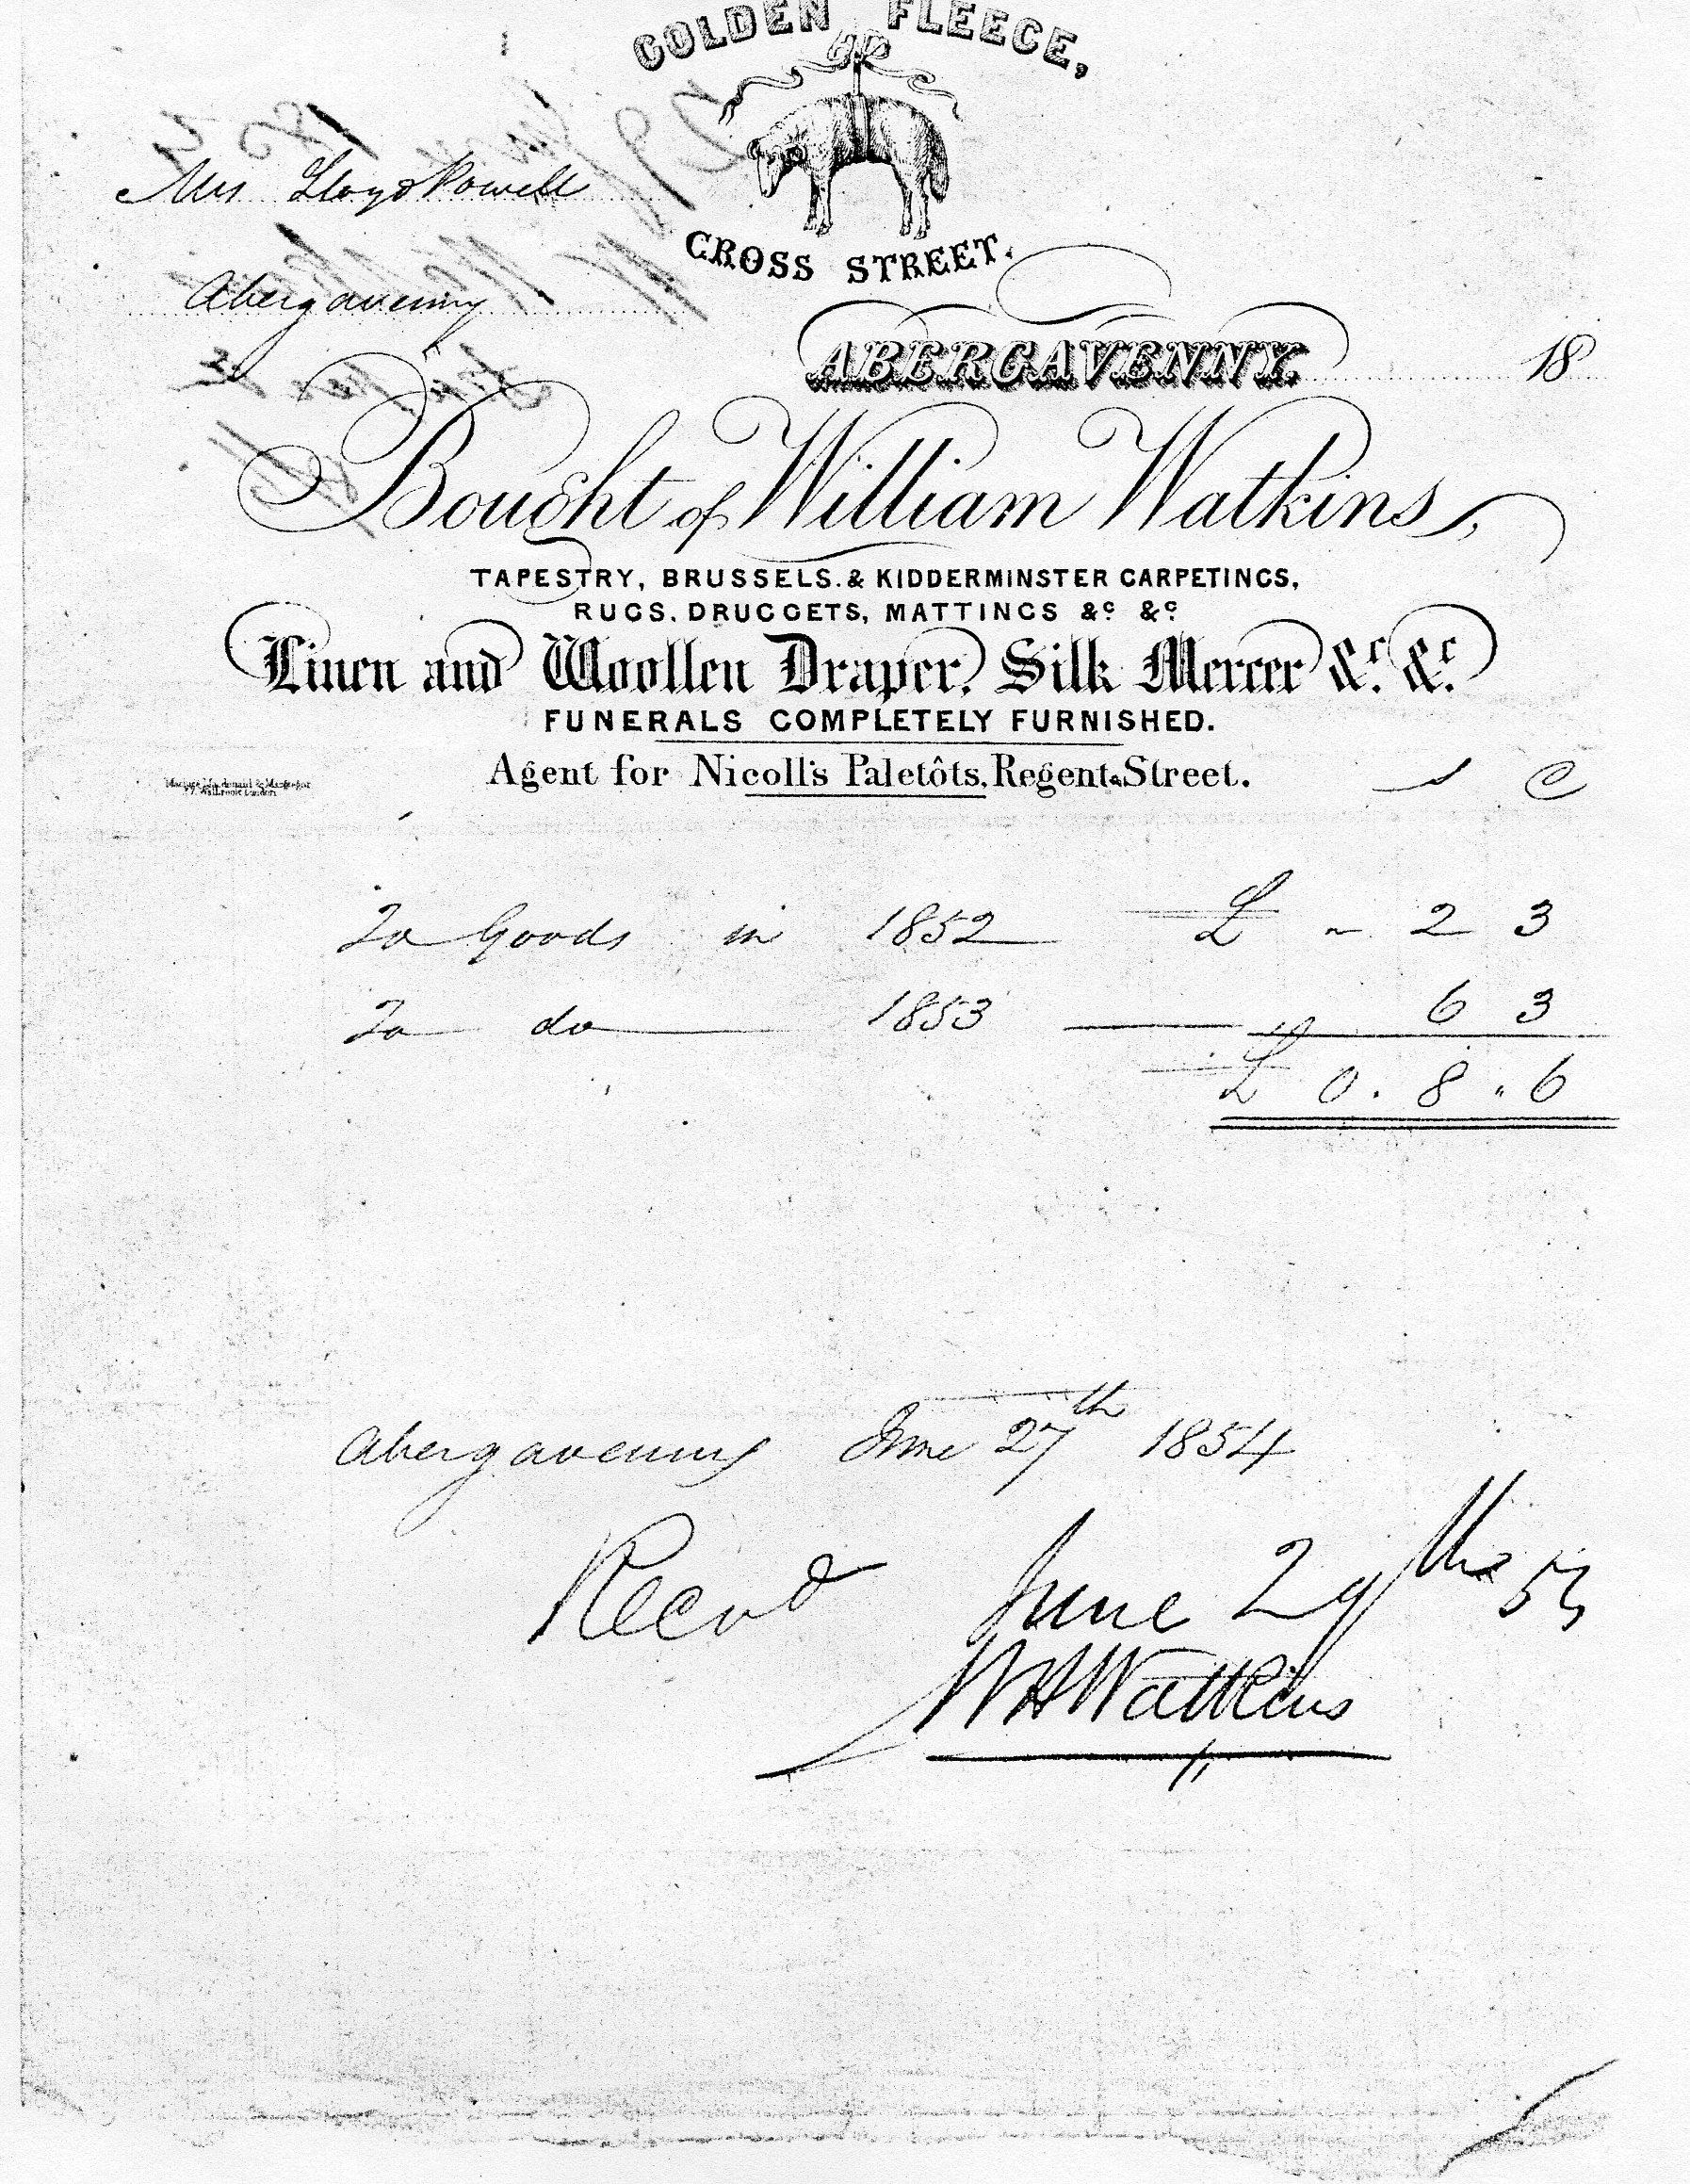 GOLDEN FLEECE,
Mrs Lloyd Powell
CROSS STREET.
Abergavenny
ABERGAVENNY. 18
Bought of William Watkins,
TAPESTRY, BRUSSELS. & KIDDERMINSTER CARPETINGS,
RUGS, DRUGGETS, MATTINGS &c &c
Linen and Woollen Draper, Silk Mercer &c. &c.
FUNERALS COMPLETELY FURNISHED.
Agent for Nicoll's Paletôts, Regent Street.
To Goods in 1852 £ 2 3
To do 1853 6 3
£ 0. 8. 6
Abergavenny June 27th 1854
Recvd June 29th
WH Watkins